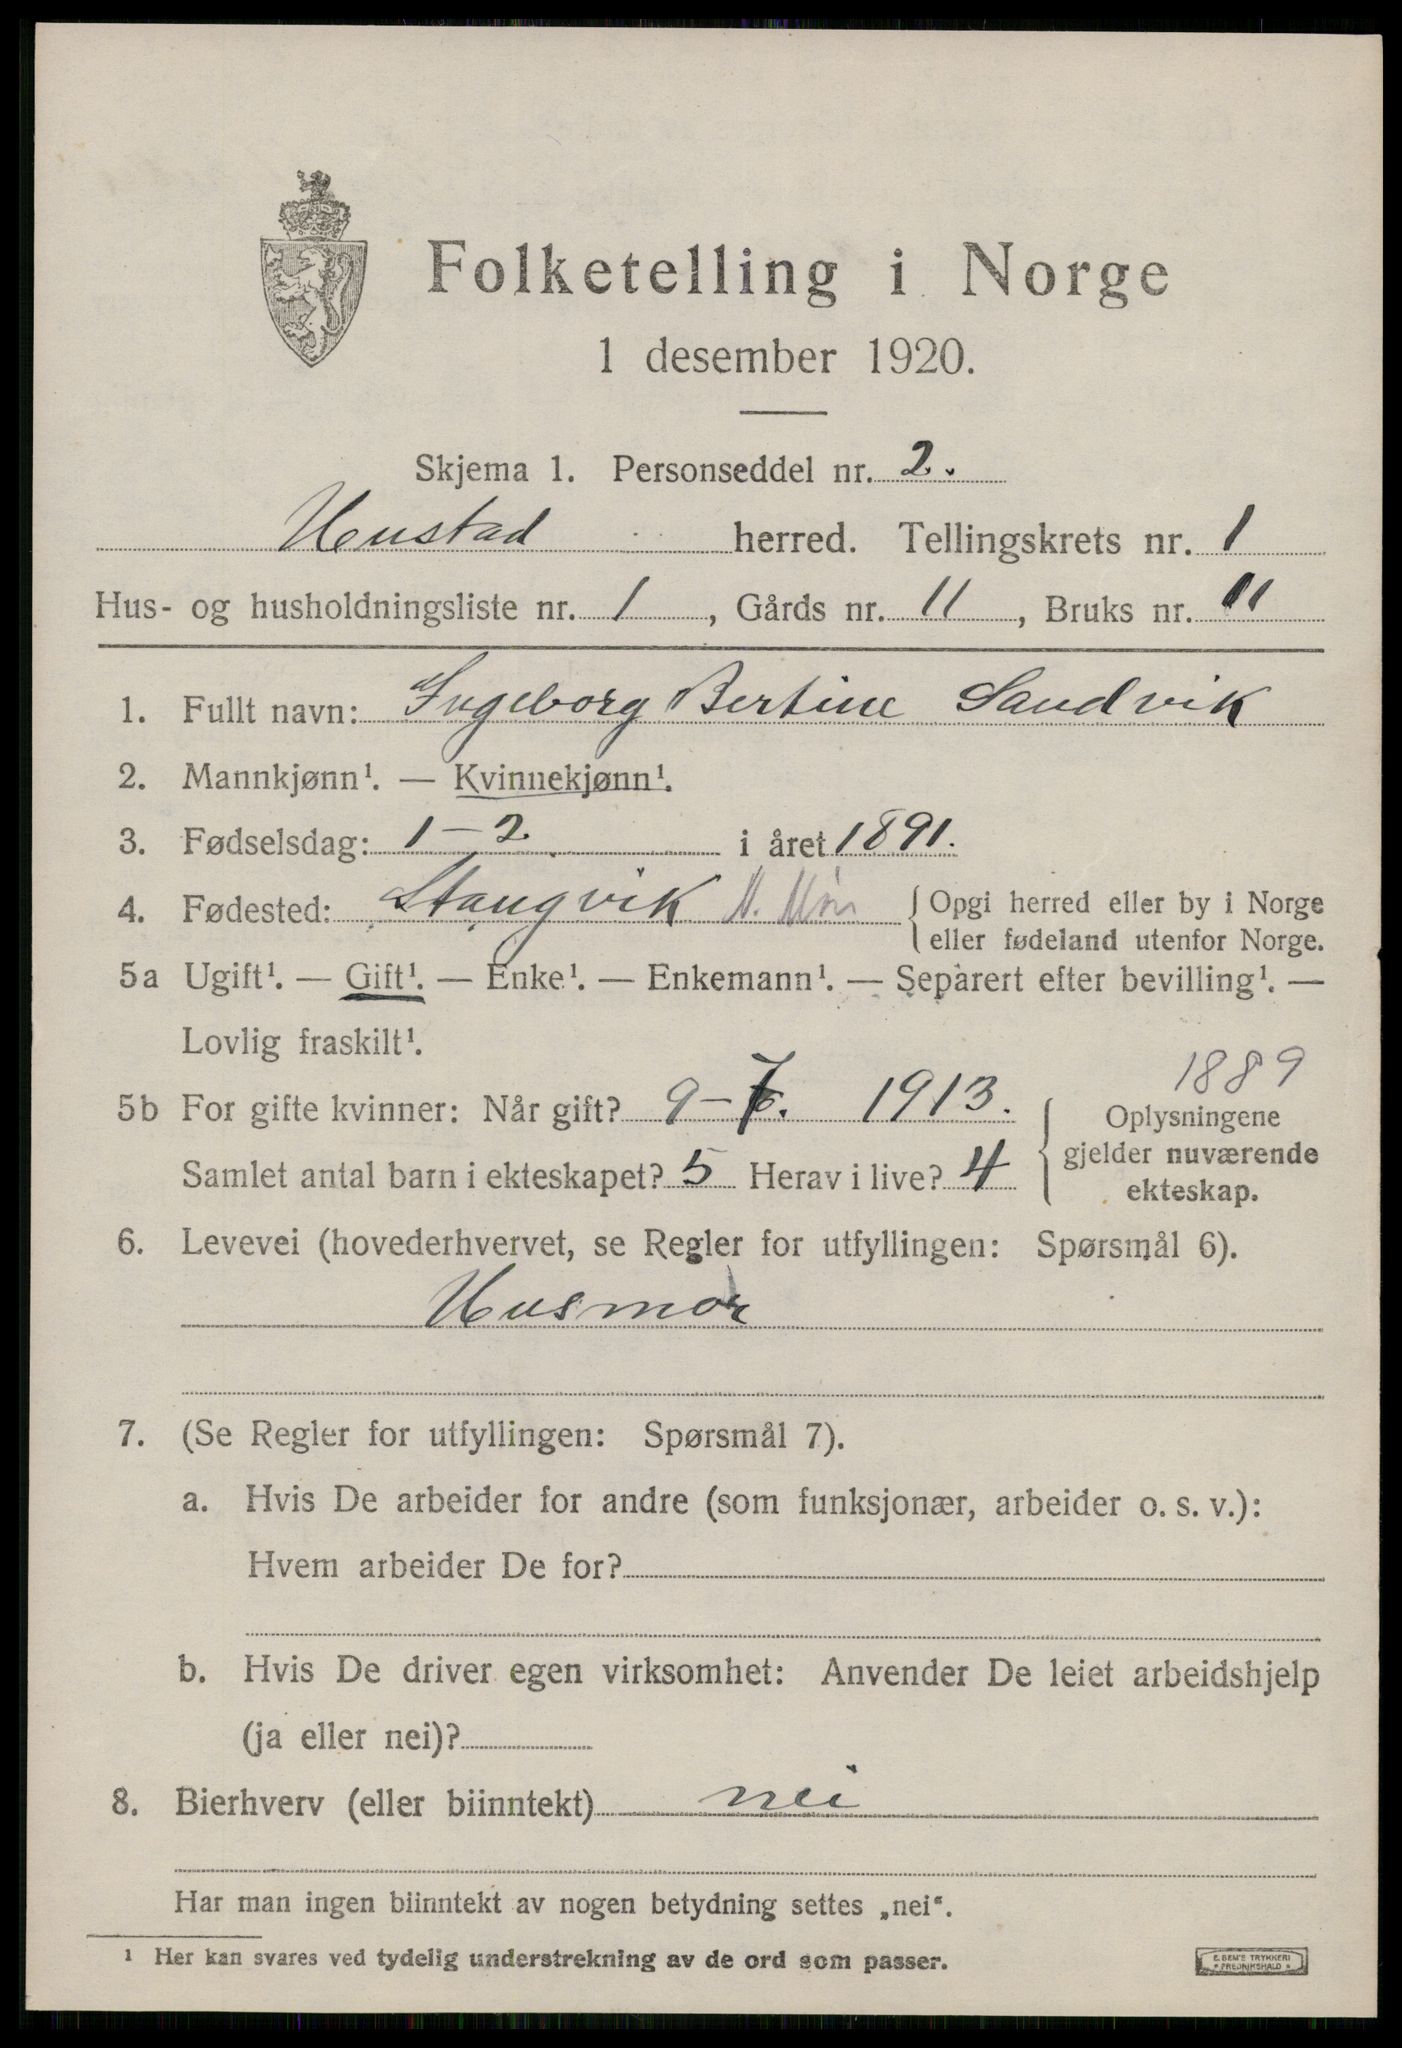 Folketelling i Norge
1 desember 1920.
Skjema 1. Personseddel nr. 2.
Hustad herred. Tellingskrets nr. 1
Hus- og husholdningsliste nr. 1, Gårds nr. 11, Bruks nr. 11
1. Fullt navn: Ingeborg Bertine Sandvik
2. Mannkjønn¹. — Kvinnekjønn¹.
3. Fødselsdag: 1-2 i året 1891.
4. Fødested: Stangvik N. Mør { Opgi herred eller by i Norge
eller fødeland utenfor Norge.
5a Ugift¹. — Gift¹. — Enke¹. — Enkemann¹. — Separert efter bevilling¹. —
Lovlig fraskilt¹.
1889
5b For gifte kvinner: Når gift? 9-7. 1913. { Oplysningene
gjelder nuværende
Samlet antal barn i ekteskapet? 5 Herav i live? 4
ekteskap.
6. Levevei (hovederhvervet, se Regler for utfyllingen: Spørsmål 6).
Husmor
7. (Se Regler for utfyllingen: Spørsmål 7).
a. Hvis De arbeider for andre (som funksjonær, arbeider o. s. v.):
Hvem arbeider De for?
b. Hvis De driver egen virksomhet: Anvender De leiet arbeidshjelp
(ja eller nei)?
8. Bierhverv (eller biinntekt) nei
Har man ingen biinntekt av nogen betydning settes „nei“.
¹ Her kan svares ved tydelig understrekning av de ord som passer.
E. SEM'S TRYKKERI
* FREDRIKSHALD *